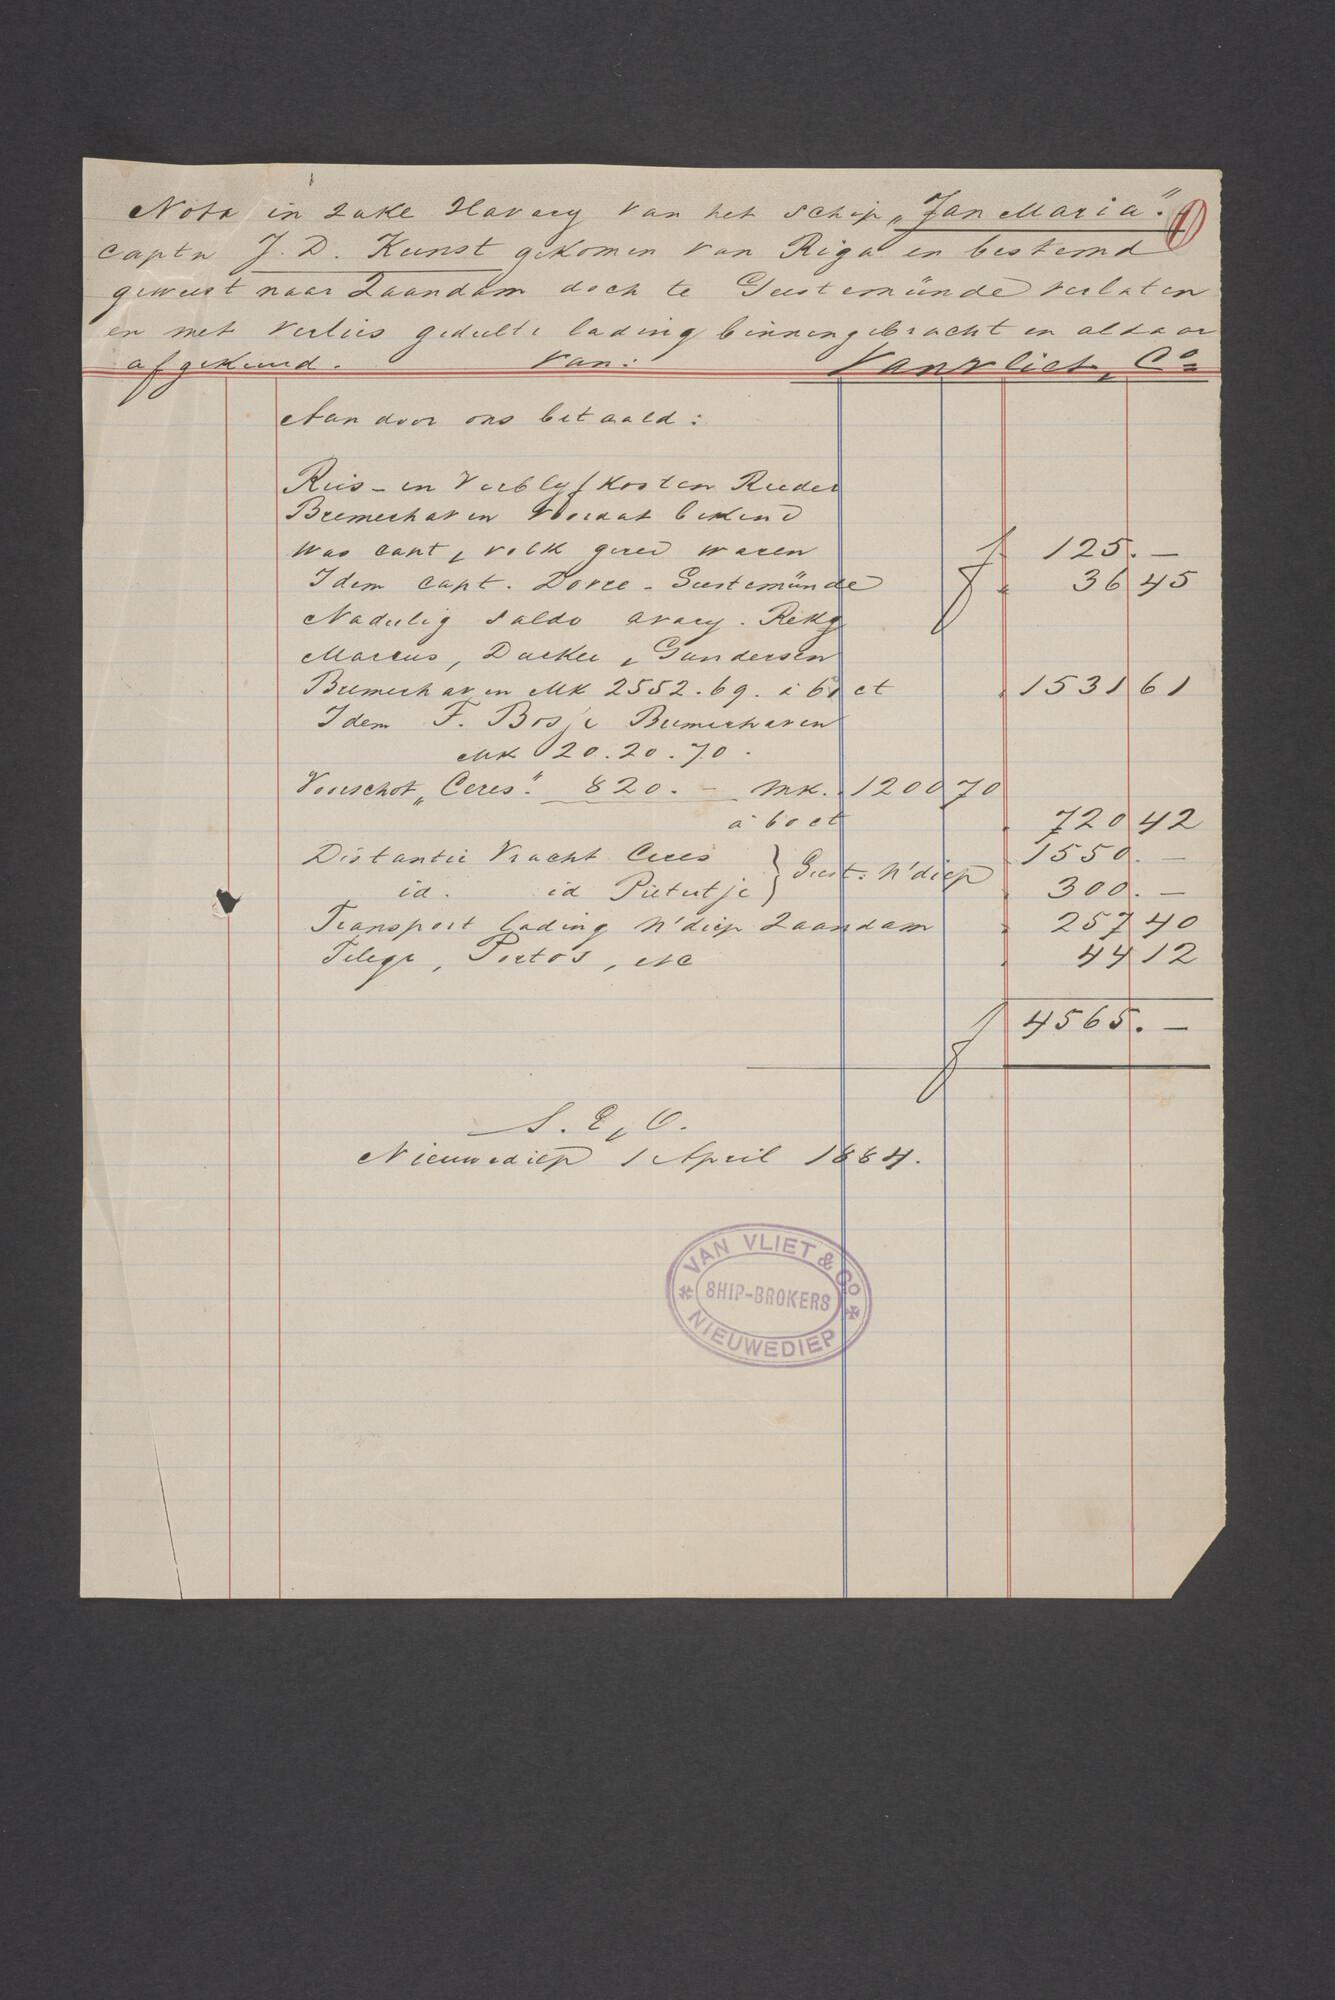 Nota in zake Havary van het schip „Jan Maria”.
1
captn J. D. Kunst gekomen van Riga en bestemd
geweest naar Zaandam doch te Geestemünde verlaten
en met verlies gedeelte lading binnengebracht en aldaar
afgekeurd. Van: Van Vliet & Co
Aan door ons betaald:
Reis- en Verblyfkosten Reeder
Bremerhaven voordat bekend
was capt & volk gered waren f 125.—
Idem capt. Dovee - Geestemünde " 36 45
Nadeelig saldo avary. Rekg
Marcus, Dacker & Gundersen
Bremerhaven Mk 2552.69. à 60 ct " 1531 61
Idem F. Bosje Bremerhaven
Mk 20.20.70.
Voorschot „Ceres”. 820.— Mk. 1200 70
à 60 ct " 720 42
Distantie Vracht Ceres } Geest: N'diep 1550.—
id. id Pietertje " 300.—
Transport lading N'diep Zaandam " 257 40
Telegr, Portos, etc " 44 12
f 4565.—
S. E & O.
Nieuwediep 1 April 1884.
VAN VLIET & Co
SHIP-BROKERS
NIEUWEDIEP